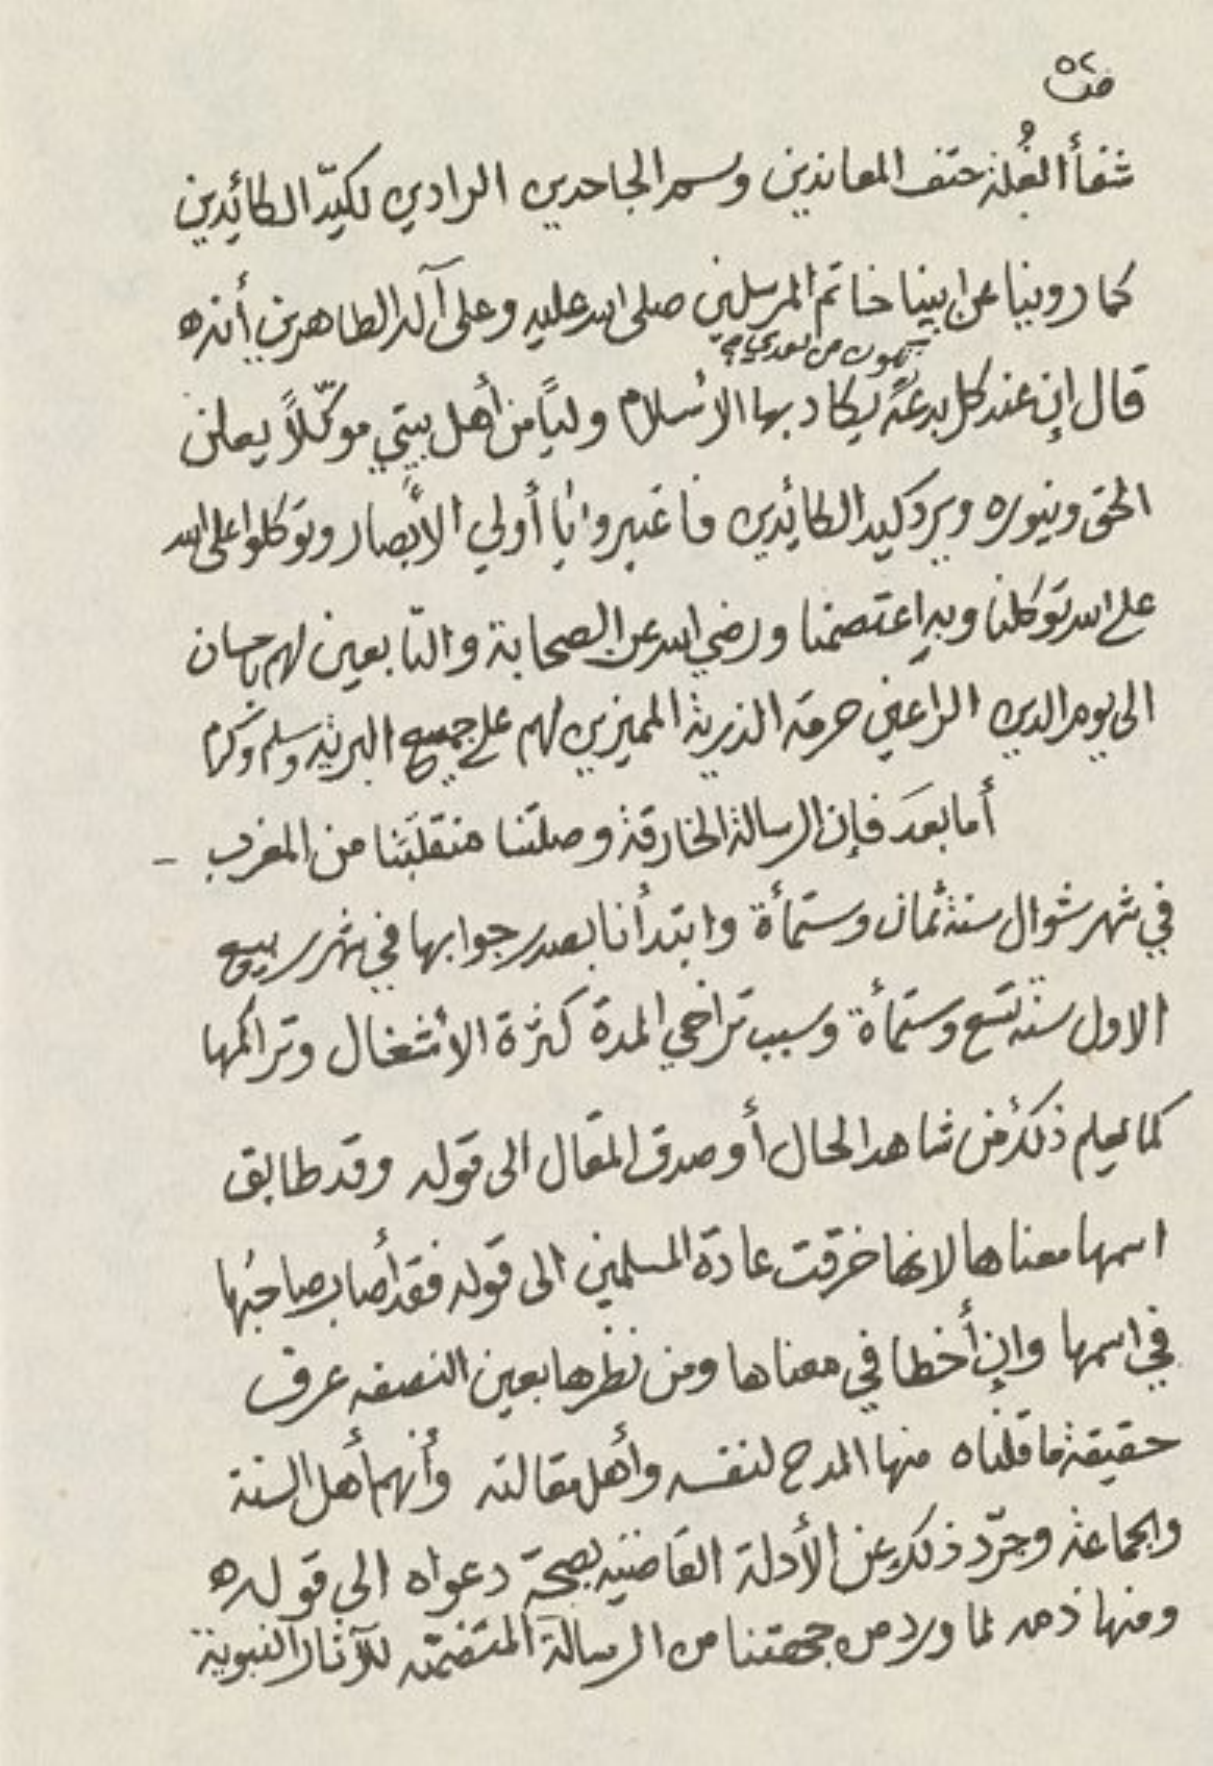 ٥٢
شفأ الغُلة حتف المعاندين وسم الجاحدين الرادين لكيدّ الكائدين
كما روينا عن ابينا خاتم المرسلين صلى الله عليه وعلى آله الطاهرين أنه
تكون من بعدي
قال إن عند كل بدعةً يكاد بها الاسلام وليًا من أهل بيتي موكّلاً يعلن
الحق وينوره ويرد كيد الكائدين فاعتبروا يا أولي الأبصار وتوكلوا على الله
على الله توكلنا وبه اعتصمنا ورضي الله عن الصحابة والتّابعين لهم باحسان
الى يوم الدين الراعين حرمة الذرية المميزين لهم على جميع البرية وسلم وكرم
أما بعدَ فإن الرسالة الخارقة وصلتنا منقلبَتنا من المغرب –
في شهر شوال سنة ثمان وستمأة وابتدأنا بصدر جوابها في شهر ربيع
الاول سنة تسع وستمأة وسبب تراخي المدة كثرة الأشغال وتراكمها
كما يعلم ذلك من شاهد الحال أو صدق المقال الى قوله وقد طابق
اسمها معناها لانها خرقت عادة المسلمين الى قوله فقد أصاب صاحبُها
في اسمها وإن أخطا في معناها ومن نظرها بعين النصفه عرف
حقيقة ما قلناه منها المدح لنفسه وأهل مقالته وأنهم أهل السنة
والجماعة وجرّد ذلك عن الأدلة القاضيه بصحة دعواه الى قوله
ومنها ذمه لما ورد من جهتنا من الرسالة المتضمّنه للآثار النبوية